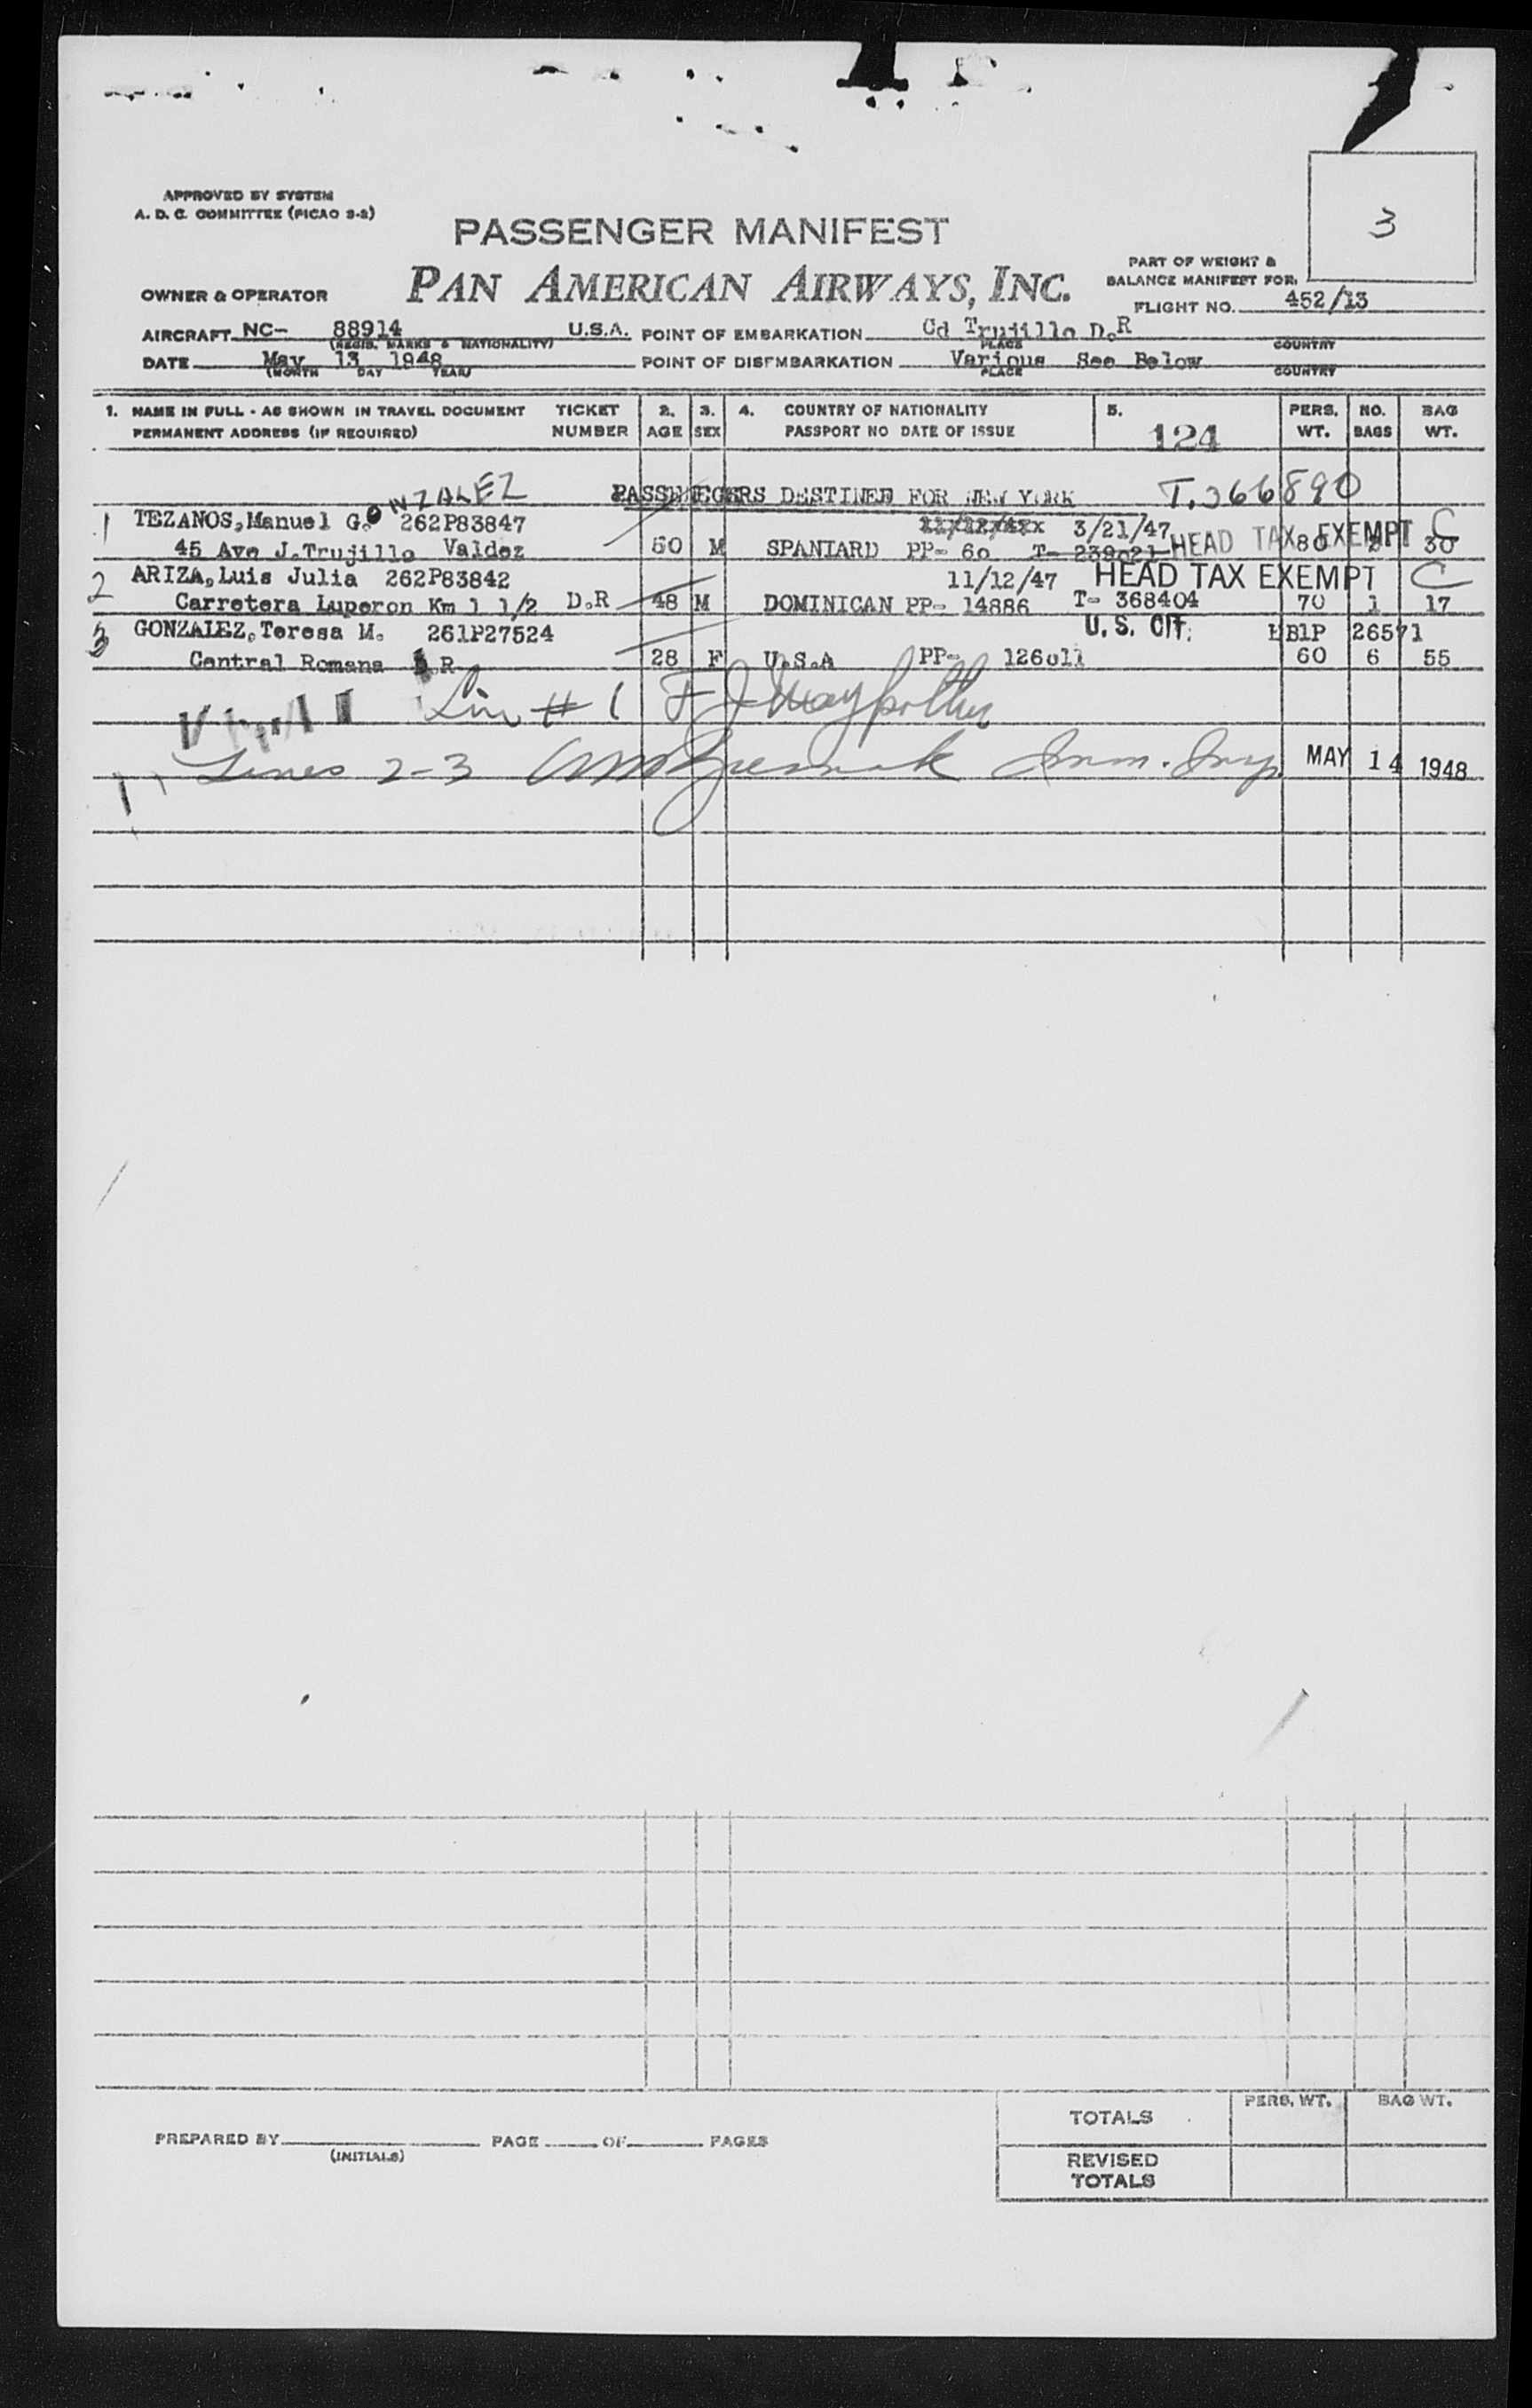 APPROVED BY SYSTEM
A. D. C. COMMITTEE (PICAO 3-2)
3
PASSENGER MANIFEST
PART OF WEIGHT &
BALANCE MANIFEST FOR:
OWNER & OPERATOR PAN AMERICAN AIRWAYS, INC.
FLIGHT NO. 452/13
AIRCRAFT NC- 88914 U.S.A. POINT OF EMBARKATION Cd Trujillo D.R
(REGIS. MARKS & NATIONALITY) PLACE COUNTRY
DATE May 13 1948 POINT OF DISEMBARKATION Various See Below
(MONTH DAY YEAR) PLACE COUNTRY
1. NAME IN FULL - AS SHOWN IN TRAVEL DOCUMENT TICKET 2. 3. 4. COUNTRY OF NATIONALITY 5. PERS. NO. BAG
PERMANENT ADDRESS (IF REQUIRED) NUMBER AGE SEX PASSPORT NO DATE OF ISSUE 124 WT. BAGS WT.
ONZALEZ PASSENEGERS DESTINED FOR NEW YORK T.366890
1 TEZANOS, Manuel G. 262P83847 3/21/47 HEAD TAX EXEMPT C
45 Ave J.Trujillo Valdez 50 M SPANIARD PP- 60 T- 239021 80 2 30
2 ARIZA, Luis Julia 262P83842 11/12/47 HEAD TAX EXEMPT C
Carretera Luperon Km 1 1/2 D.R 48 M DOMINICAN PP- 14886 T- 368404 70 1 17
3 GONZALEZ, Teresa M. 261P27524 U.S. CIT. 26571
Central Romana D.R 28 F U.S.A PP- 126011 60 6 55
Lin # 1 F J
Lines 2-3 Imm. Insp. MAY 14 1948
TOTALS PERS. WT. BAG WT.
PREPARED BY PAGE OF PAGES
(INITIALS)
REVISED
TOTALS